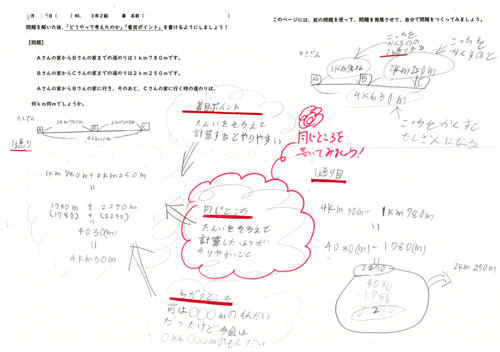 月　日（　）NO.　3年2組　番 名前（　）
問題を解いた後、「どうやって考えたのか」「着目ポイント」を書けるようにしましょう！
【問題】
Aさんの家からBさんの家までの道のりは1km780mです。
Bさんの家からCさんの家までの道のりは2km250mです。
Aさんの家からBさんの家に行き、そのあと、Cさんの家に行く時の道のりは、
何km何mでしょうか。
たしざん
A B C
1km780m 2km250m
4km30m
1通り
1km780m+2km250m
=
1780m + 2250m
(1780) + (2250)
=
4030(m)
=
4km30m
着目ポイント
たんいをそろえて
計算するとやりやすい
同じところを
書いてみましょう！
同じところ
たんいをそろえて
計算したほうが
やりやすいこと
ちがうところ
前は○○○mのもんだい
だったけど今会は
○km○○○mのもんだい
このページには、前の問題を使って、問題を発展させて、自分で問題をつくってみましょう。
ひきざん
こっちを
かくすのも
2通りある
こっちを
かくすのと
1km780m 2km250m
A B C
4km30m
こっちをかくすと
たしざんになる
1通り目
4km30m - 1km780m
=
4030(m) - 1780(m)
=
2250
4030
1780
2250
2km250m